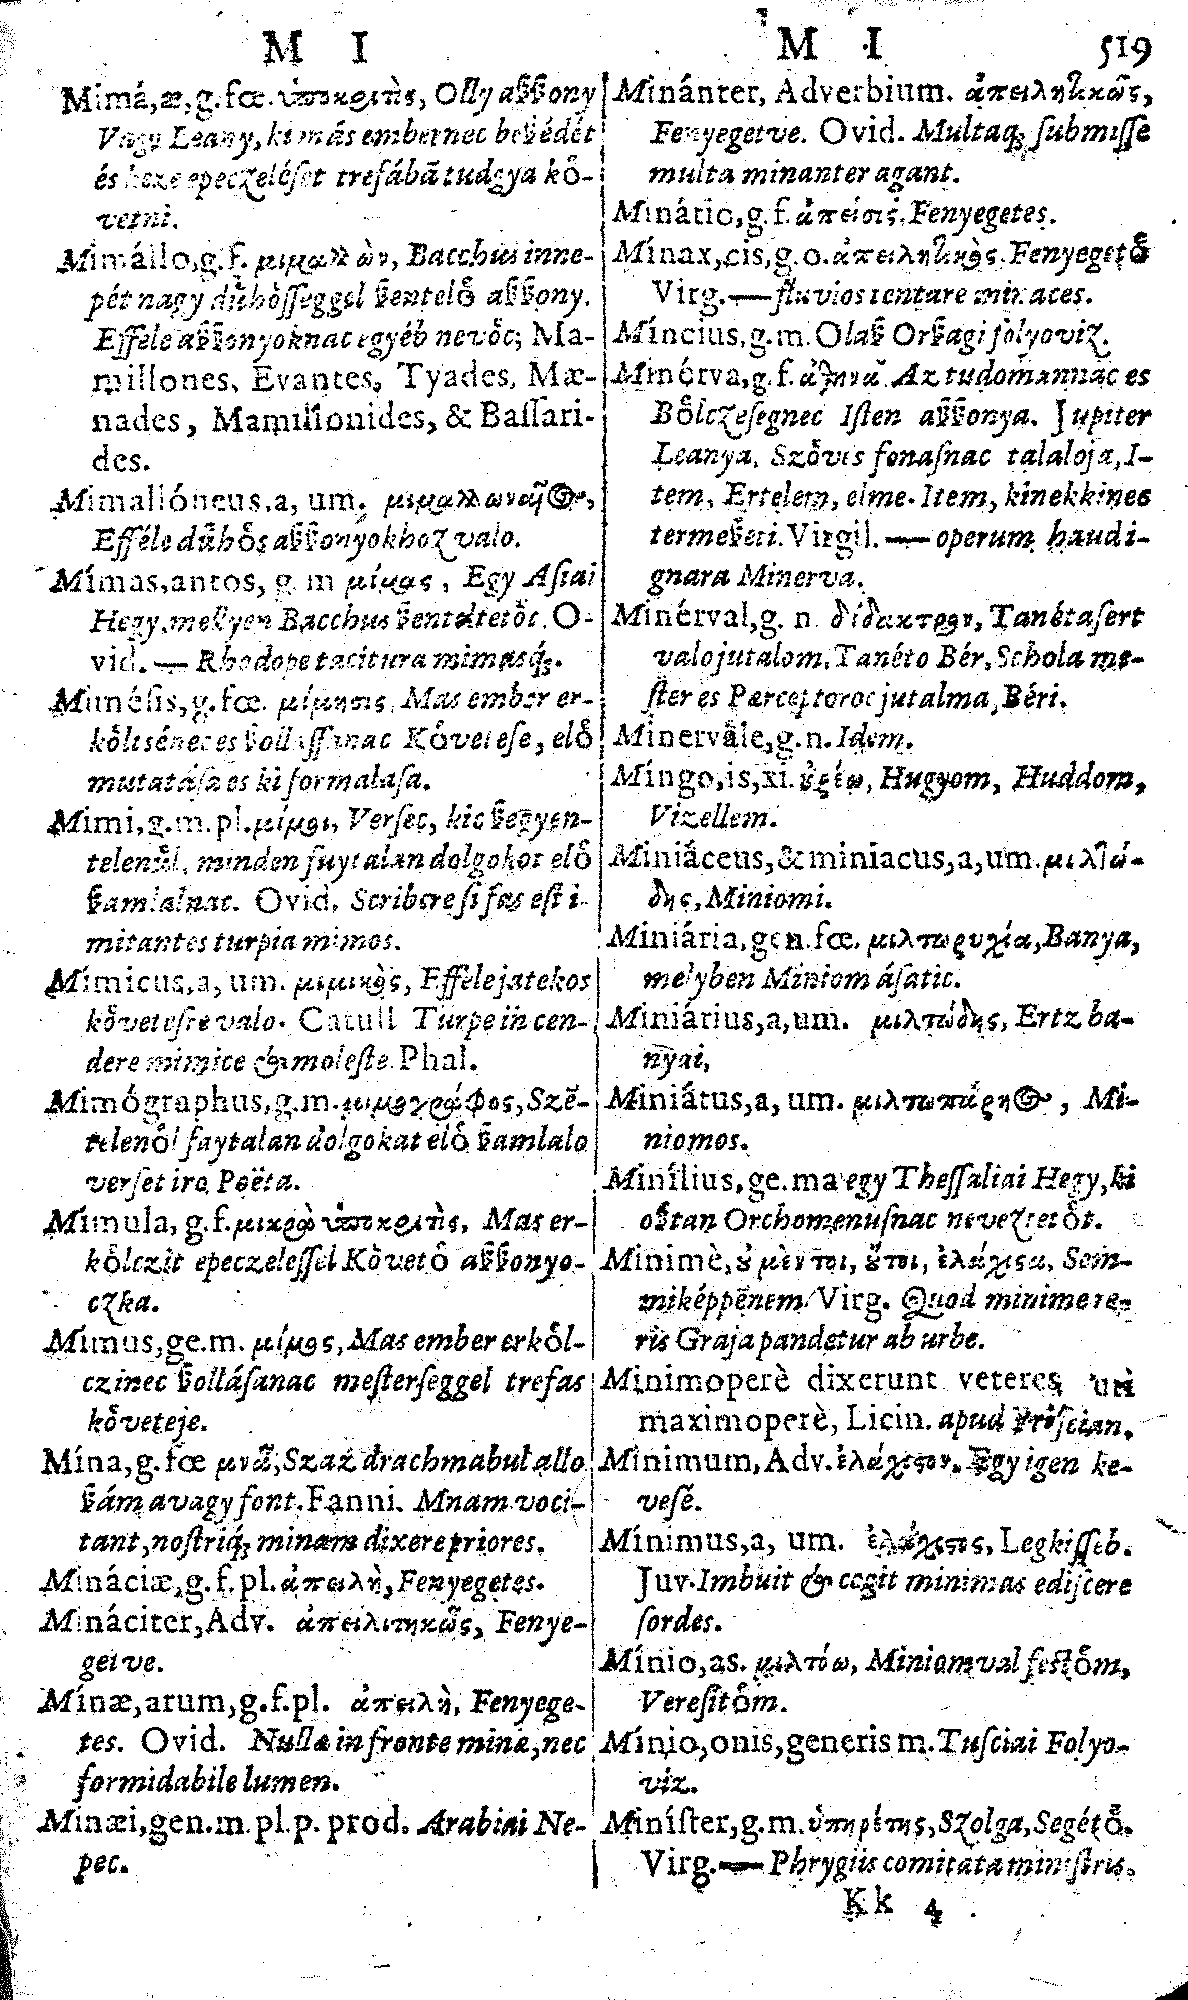 M I
Mimá, æ, g. fœ. ὑποκριτὴς, Olly aßßony
Vagy Leany, ki más embernec beßédét
és keze epeczelését trefábã tudgya kő-
vetni.
Mimállo, g. f. μιμαλλὼν, Bacchus inne-
pét nagy dűhősseggel ßentelő aßßony.
Effele aßßonyoknac egyéb nevőc; Ma-
millones, Evantes, Tyades, Mæ-
nades, Mamillonides, & Bassari-
des.
Mimallóneus, a, um.
Efféle dűhős aßßonyokhoz valo.
Mímas, antos, g. m μίμας, Egy Asiai
Hegy, mellyen Bacchus ßenteltetőt. O-
vid. — Rhodope tacitura mimasq́;.
Mimésis, g. fœ. μίμησις, Mas ember er-
kőltsénec es ßollassanac Kővetese, elő
mutatása es ki formalasa.
Mimi, g. m. pl. μίμοι, Versec, kic ßegyen-
telenűl, minden fuytalan dolgokot elő
ßamlalnac. Ovid. Scribere si fas est i-
mitantes turpia mimos.
Mímicus, a, um. μιμικὸς, Effele jatekos
kővetesre valo. Catull Turpe in cen-
dere mimice & moleste. Phal.
Mimógraphus, g. m. μιμογράφος, Szẽ-
telenől faytalan dolgokat elő ßamlalo
verset iro, Poëta.
Mímula, g. f. μικρὰ ὑποκριτὴς, Mas er-
kőlczit epeczelessel Kővető aßßonyo-
czka.
Mimus, ge. m. μίμος, Mas ember erkől-
czinec ßollásanac mesterseggel trefas
kőveteje.
Mína, g. fœ μνᾶ, Szaz drachmabul allo
ßám avagy font. Fanni. Mnam voci-
tant, nostriq́; minam dixere priores.
Mináciæ, g. f. pl. ἀπειλὴ, Fenyegetes.
Mináciter, Adv. Fenye-
getve.
Mínæ, arum, g. f. pl. ἀπειλὴ, Fenyege-
tes. Ovid. Nullæ in fronte minæ, nec
formidabile lumen.
Minæi, gen. m. pl. p. prod. Arabiai Ne-
pec.
M I 519
Minánter, Adverbium. ἀπειλητικῶς,
Fenyegetve. Ovid. Multaq́; submisse
multa minanter agant.
Minátio, g. f. Fenyegetes.
Mínax, cis, g. o. ἀπειλητικὸς. Fenyegető
Virg. — fluvios tentare minaces.
Míncius, g. m. Olaß Orßagi folyoviz.
Minérva, g. f. ἀθηνᾶ. Az tudomannac es
Bőlczesegnec Isten aßßonya. Jupiter
Leanya, Szővis fonasnac talaloja, I-
tem, Ertelem, elme. Item, kinekkinec
termeßeti. Virgil. — operum haud i-
gnara Minerva.
Minérval, g. n. δίδακτρον, Tanétasert
valo jutalom, Tanéto Bér, Schola me-
ster es Pæceptoroc jutalma, Béri.
Minervâle, g. n. Idem.
Míngo, is, xi. Hugyom, Huddom,
Vizellem.
Miniáceus, & miniacus, a, um. μιλτώ-
δης, Miniomi.
Miniária, gen. fœ. μιλτωρυχία, Banya,
melyben Miniom ásatic.
Miniárius, a, um. μιλτώδης, Ertz ba-
nyai,
Miniátus, a, um. Mi-
niomos.
Minílius, ge. ma egy Thessaliai Hegy, ki
osztan Orchomenusnac neveztetőt.
Minimè, ȣ μέντοι, ȣτοι, ἐλάχιστα, Sem-
miképpẽnem Virg. Quod minime re-
ris Graja pandetur ab urbe.
Minimoperè dixerunt veteres, uti
maximoperè, Licin. apud Priscian.
Minimum, Adv. ἐλάχιστον. Egy igen ke-
vesé.
Mínimus, a, um. ἐλάχιστος, Legkisseb.
Juv. Imbuit & cogit minimas ediscere
sordes.
Mínio, as. μιλτόω, Miniomval festőm,
Veresitőm.
Mínio, onis, generis m. Tusciai Folyo-
viz.
Miníster, g. m. ὑπηρέτης, Szolga, Segétő.
Virg. — Phrygiis comitata ministris.
Kk 4